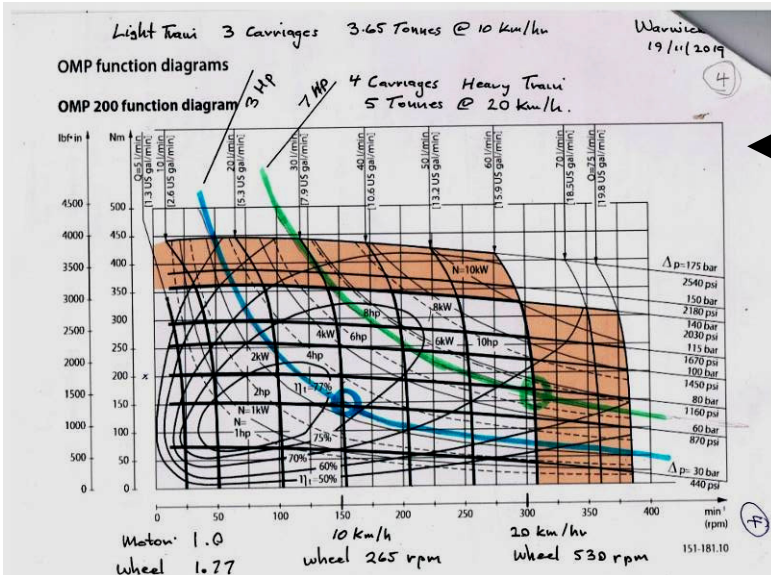 Light Train 3 Carriages 3.65 Tonnes @ 10 km/hr
19/11/2019
4
OMP function diagrams
3 Hp
7 Hp
4 Carriages Heavy Train
OMP 200 function diagram
5 Tonnes @ 20 Km/h.
lbf•in
Nm
Q=5 l/min
[1.3 US gal/min]
10 l/min
[2.6 US gal/min]
20 l/min
[5.3 US gal/min]
30 l/min
[7.9 US gal/min]
40 l/min
[10.6 US gal/min]
50 l/min
[13.2 US gal/min]
60 l/min
[15.9 US gal/min]
70 l/min
[18.5 US gal/min]
Q=75 l/min
[19.8 US gal/min]
4500
4000
3500
3000
2500
2000
1500
1000
500
0
500
450
400
350
300
250
200
150
100
50
0
x
N=10kW
8kW
8hp
6kW
10hp
4kW
6hp
2kW
4hp
2hp
ηt=77%
N=1kW
N=
1hp
75%
70%
60%
ηt=50%
Δ p=175 bar
2540 psi
150 bar
2180 psi
140 bar
2030 psi
115 bar
1670 psi
100 bar
1450 psi
80 bar
1160 psi
60 bar
870 psi
Δ p= 30 bar
440 psi
0
50
100
150
200
250
300
350
400
min⁻¹
(rpm)
Motor 1.0
10 km/h
20 km/hr
Wheel 1.77
wheel 265 rpm
Wheel 530 rpm
151-181.10